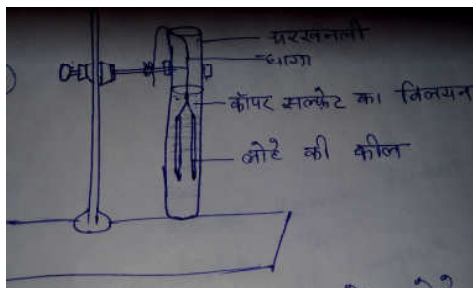 परखनली
धागा
कॉपर सल्फेट का विलयन
लोहे की कील